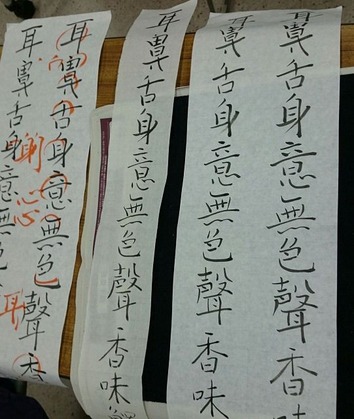 鼻舌身意無色聲香味
鼻舌身意無色聲香味
耳鼻舌身意無色聲香味
耳鼻舌身意無色聲香
身心心耳
耳鼻舌身意無色